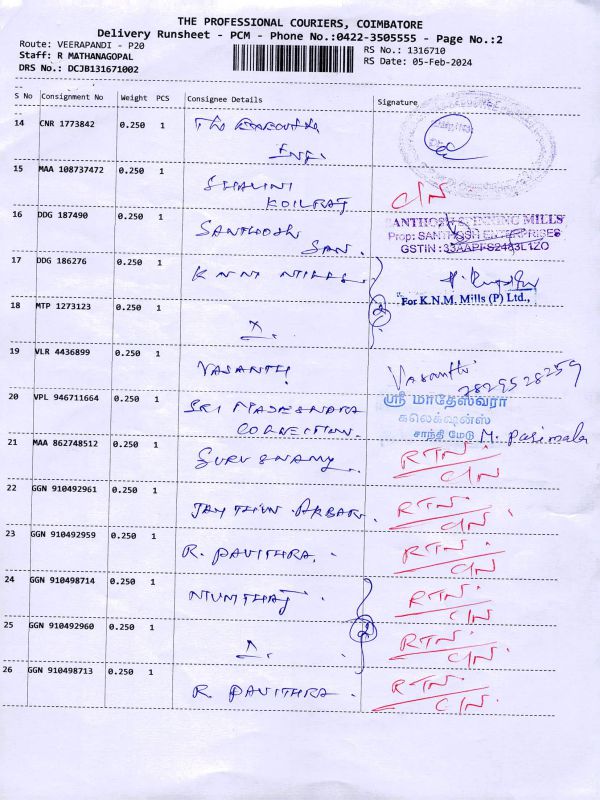 THE PROFESSIONAL COURIERS, COIMBATORE
Delivery Runsheet - PCM - Phone No.:0422-3505555 - Page No.:2
Route: VEERAPANDI - P20
Staff: R MATHANAGOPAL
DRS No.: DCJB131671002
RS No.: 1316710
RS Date: 05-Feb-2024
S No Consignment No Weight PCS Consignee Details Signature
14 CNR 1773842 0.250 1
15 MAA 108737472 0.250 1 SHALINI
KOILRAJ
C/N
16 DDG 187490 0.250 1 SANTHOSH
SAN.
SANTHOSH SPINNING MILLS
Prop: SANTHOSH ENTERPRISES
17 DDG 186276 0.250 1 KNM MILLS
For K.N.M. Mills (P) Ltd.,
18 MTP 1273123 0.250 1
2
19 VLR 4436899 0.250 1 VASANTHI
Vasanthi
2829528259
20 VPL 946711664 0.250 1 SRI MAGESHWARA
CONNECTION.
ஸ்ரீ மாதேஸ்வரா
கலெக்ஷன்ஸ்
சாந்தி மேடு M. Parimala
21 MAA 862748512 0.250 1 GURUSWAMY
RTN.
C/N
22 GGN 910492961 0.250 1
RTN.
C/N
23 GGN 910492959 0.250 1 R. PAVITHRA.
RTN.
C/N
24 GGN 910498714 0.250 1 MUMTHAJ
RTN.
C/N
25 GGN 910492960 0.250 1
2
RTN.
C/N
26 GGN 910498713 0.250 1 R. PAVITHRA.
RTN.
C/N